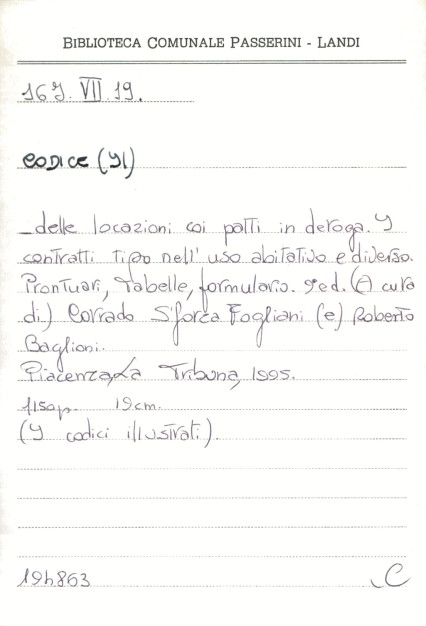 BIBLIOTECA COMUNALE PASSERINI - LANDI
16I. VII. 19.
CODICE (Il)
_delle locazioni coi patti in deroga. I
contratti tipo nell' uso abitativo e diverso.
Prontuari, Tabelle, formulario. 9ed. (A cura
di) Corrado Sforza Fogliani (e) Roberto
Baglioni.
Piacenza, La Tribuna, 1995.
1150p. 19cm.
(I codici illustrati).
194863 C